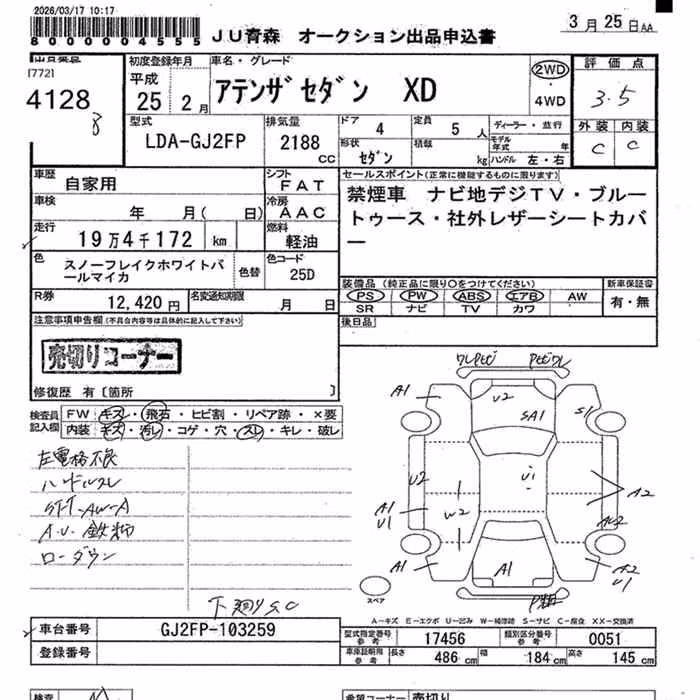 2026/03/17 10:17
8000004555
JU青森 オークション出品申込書
3月25日AA
[772]
4128
初度登録年月
平成
25年2月
車名・グレード
アテンザセダン XD
2WD
4WD
評価点
3.5
外装 内装
C C
型式
LDA-GJ2FP
排気量
2188
cc
ドア
4
定員
5人
形状
セダン
積載
kg
ディーラー・並行
モデル年式 年
ハンドル 左・右
車歴
自家用
シフト
FAT
セールスポイント(正常に機能するものに限ります)
禁煙車 ナビ地デジTV・ブルー
トゥース・社外レザーシートカバ
ー
車検
年 月( 日)
冷房
AAC
走行
19万4千172 km
燃料
軽油
色
スノーフレイクホワイトパ
ールマイカ
色替
色コード
25D
装備品(純正品に限り○をつけてください)
PS PW ABS エアB AW
SR ナビ TV カワ
新車保証書
有・無
R券
12,420円
名変通知期限
月 日
後日品
注意事項申告欄(不具合内容等は具体的に記入して下さい)
売切りコーナー
修復歴 有〔箇所 〕
検査員
記入欄
FW キズ・飛石・ヒビ割・リペア跡・×要
内装 キズ・汚レ・コゲ・穴・スレ・キレ・破レ
左電格不良
ハンドルスレ
STT-AW-A
A.U.鉄粉
ローダウン
下廻りSC
ワレサビ
A1
U2
SA1
S1
U2
U1
A2
A1
U1
W2
AU2
A1
A1
A2
U1
スペア
A-キズ E-エクボ U-凹み W-補修跡 S-サビ C-腐食 XX-交換済
車台番号
GJ2FP-103259
登録番号
型式指定番号
参考
17456
類別区分番号
参考
0051
車庫証明用
参考
長さ
486 cm
幅
184 cm
高さ
145 cm
検査
希望コーナー
売切り